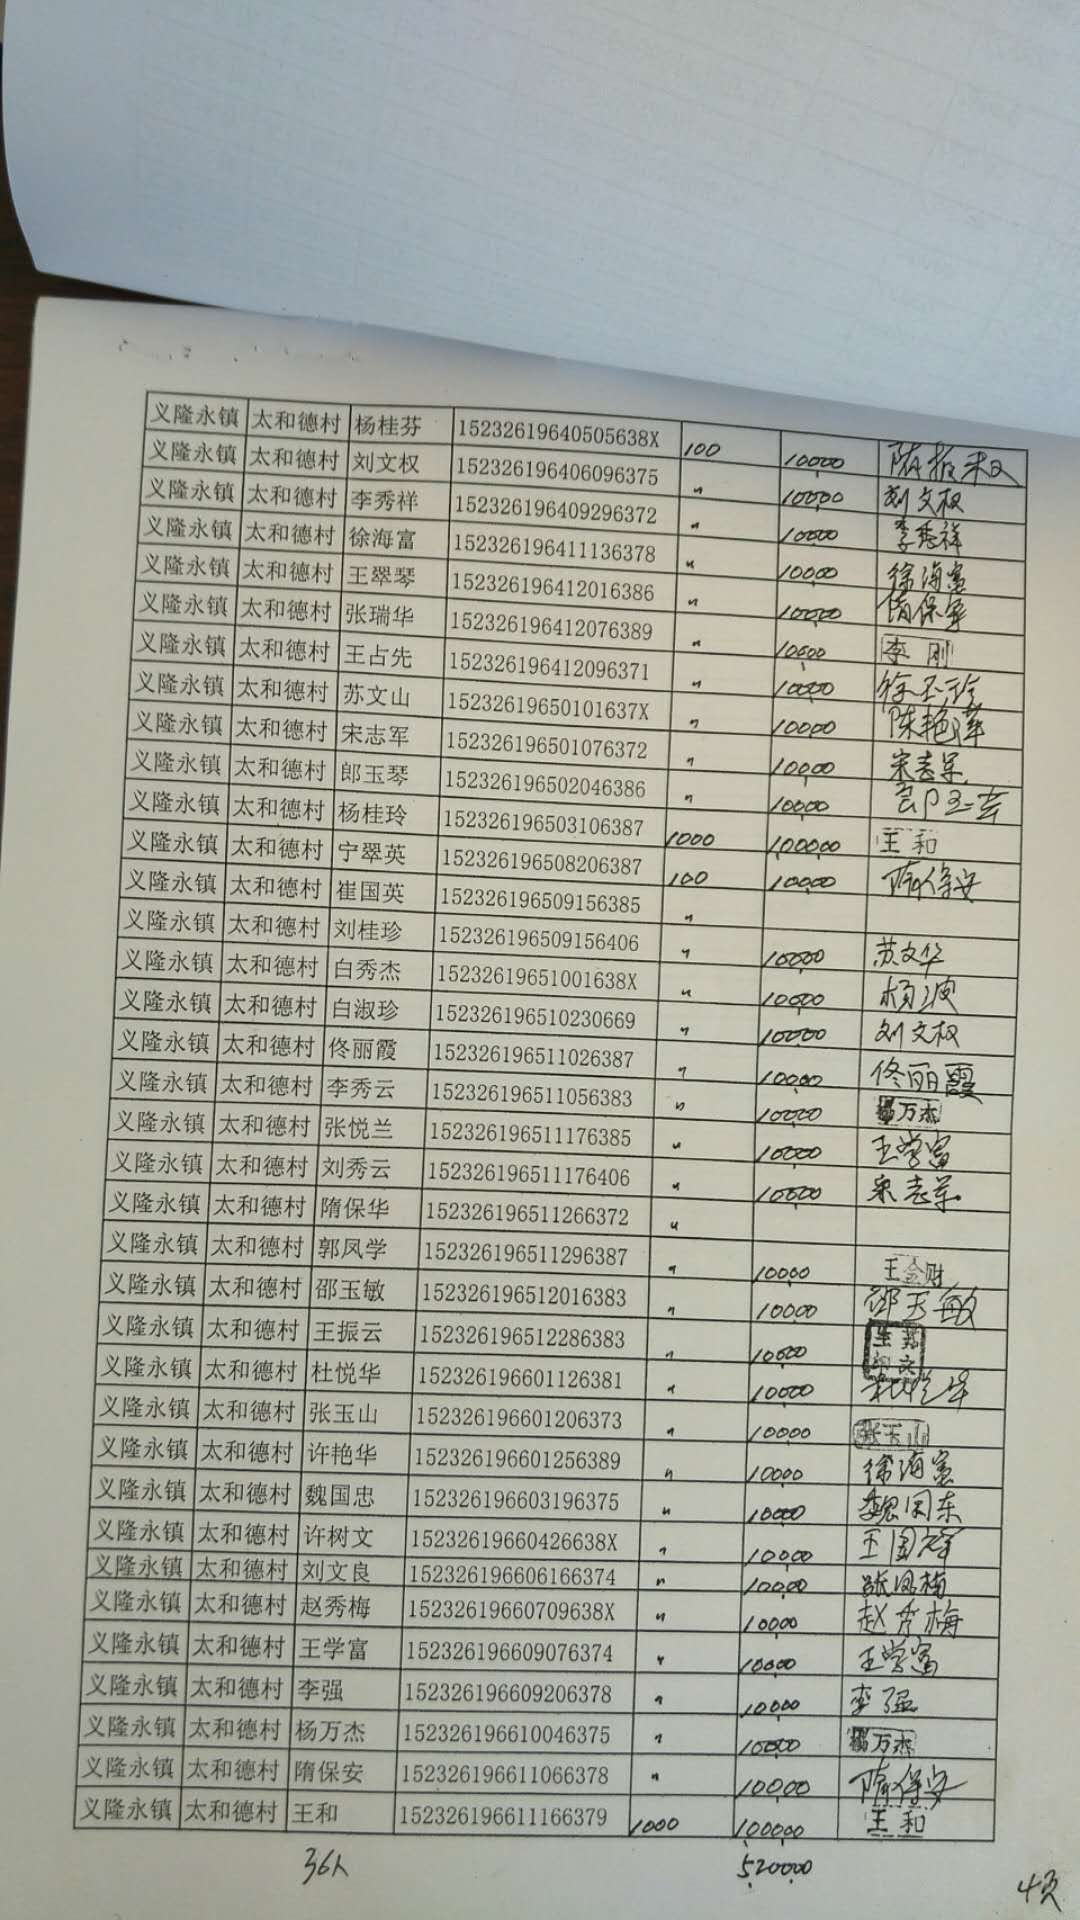 义隆永镇 太和德村 杨桂芬 15232619640505638X 100 10000
义隆永镇 太和德村 刘文权 152326196406096375 〃 10000 刘文权
义隆永镇 太和德村 李秀祥 152326196409296372 〃 10000 李秀祥
义隆永镇 太和德村 徐海富 152326196411136378 〃 10000 徐海富
义隆永镇 太和德村 王翠琴 152326196412016386 〃 10000 隋保军
义隆永镇 太和德村 张瑞华 152326196412076389 〃 10000 李刚
义隆永镇 太和德村 王占先 152326196412096371 〃 10000 徐玉珍
义隆永镇 太和德村 苏文山 15232619650101637X 〃 10000 陈艳萍
义隆永镇 太和德村 宋志军 152326196501076372 〃 10000 宋志军
义隆永镇 太和德村 郎玉琴 152326196502046386 〃 10000
义隆永镇 太和德村 杨桂玲 152326196503106387 1000 100000 王和
义隆永镇 太和德村 宁翠英 152326196508206387 100 10000 隋保安
义隆永镇 太和德村 崔国英 152326196509156385 〃
义隆永镇 太和德村 刘桂珍 152326196509156406 〃 10000 苏文华
义隆永镇 太和德村 白秀杰 15232619651001638X 〃 10000 杨波
义隆永镇 太和德村 白淑珍 152326196510230669 〃 10000 刘文权
义隆永镇 太和德村 佟丽霞 152326196511026387 〃 10000 佟丽霞
义隆永镇 太和德村 李秀云 152326196511056383 〃 10000 杨万杰
义隆永镇 太和德村 张悦兰 152326196511176385 〃 10000 王学富
义隆永镇 太和德村 刘秀云 152326196511176406 〃 10000 宋志军
义隆永镇 太和德村 隋保华 152326196511266372 〃
义隆永镇 太和德村 郭凤学 152326196511296387 〃 10000 王金财
义隆永镇 太和德村 邵玉敏 152326196512016383 〃 10000 邵玉敏
义隆永镇 太和德村 王振云 152326196512286383 〃 10000
义隆永镇 太和德村 杜悦华 152326196601126381 〃 10000 杜悦华
义隆永镇 太和德村 张玉山 152326196601206373 〃 10000 张玉山
义隆永镇 太和德村 许艳华 152326196601256389 〃 10000 徐海富
义隆永镇 太和德村 魏国忠 152326196603196375 〃 10000 魏国东
义隆永镇 太和德村 许树文 15232619660426638X 〃 10000 王国祥
义隆永镇 太和德村 刘文良 152326196606166374 〃 10000 张凤梅
义隆永镇 太和德村 赵秀梅 15232619660709638X 〃 10000 赵秀梅
义隆永镇 太和德村 王学富 152326196609076374 〃 10000 王学富
义隆永镇 太和德村 李强 152326196609206378 〃 10000 李强
义隆永镇 太和德村 杨万杰 152326196610046375 〃 10000 杨万杰
义隆永镇 太和德村 隋保安 152326196611066378 〃 10000 隋保安
义隆永镇 太和德村 王和 152326196611166379 1000 100000 王和
36人 520000
4页